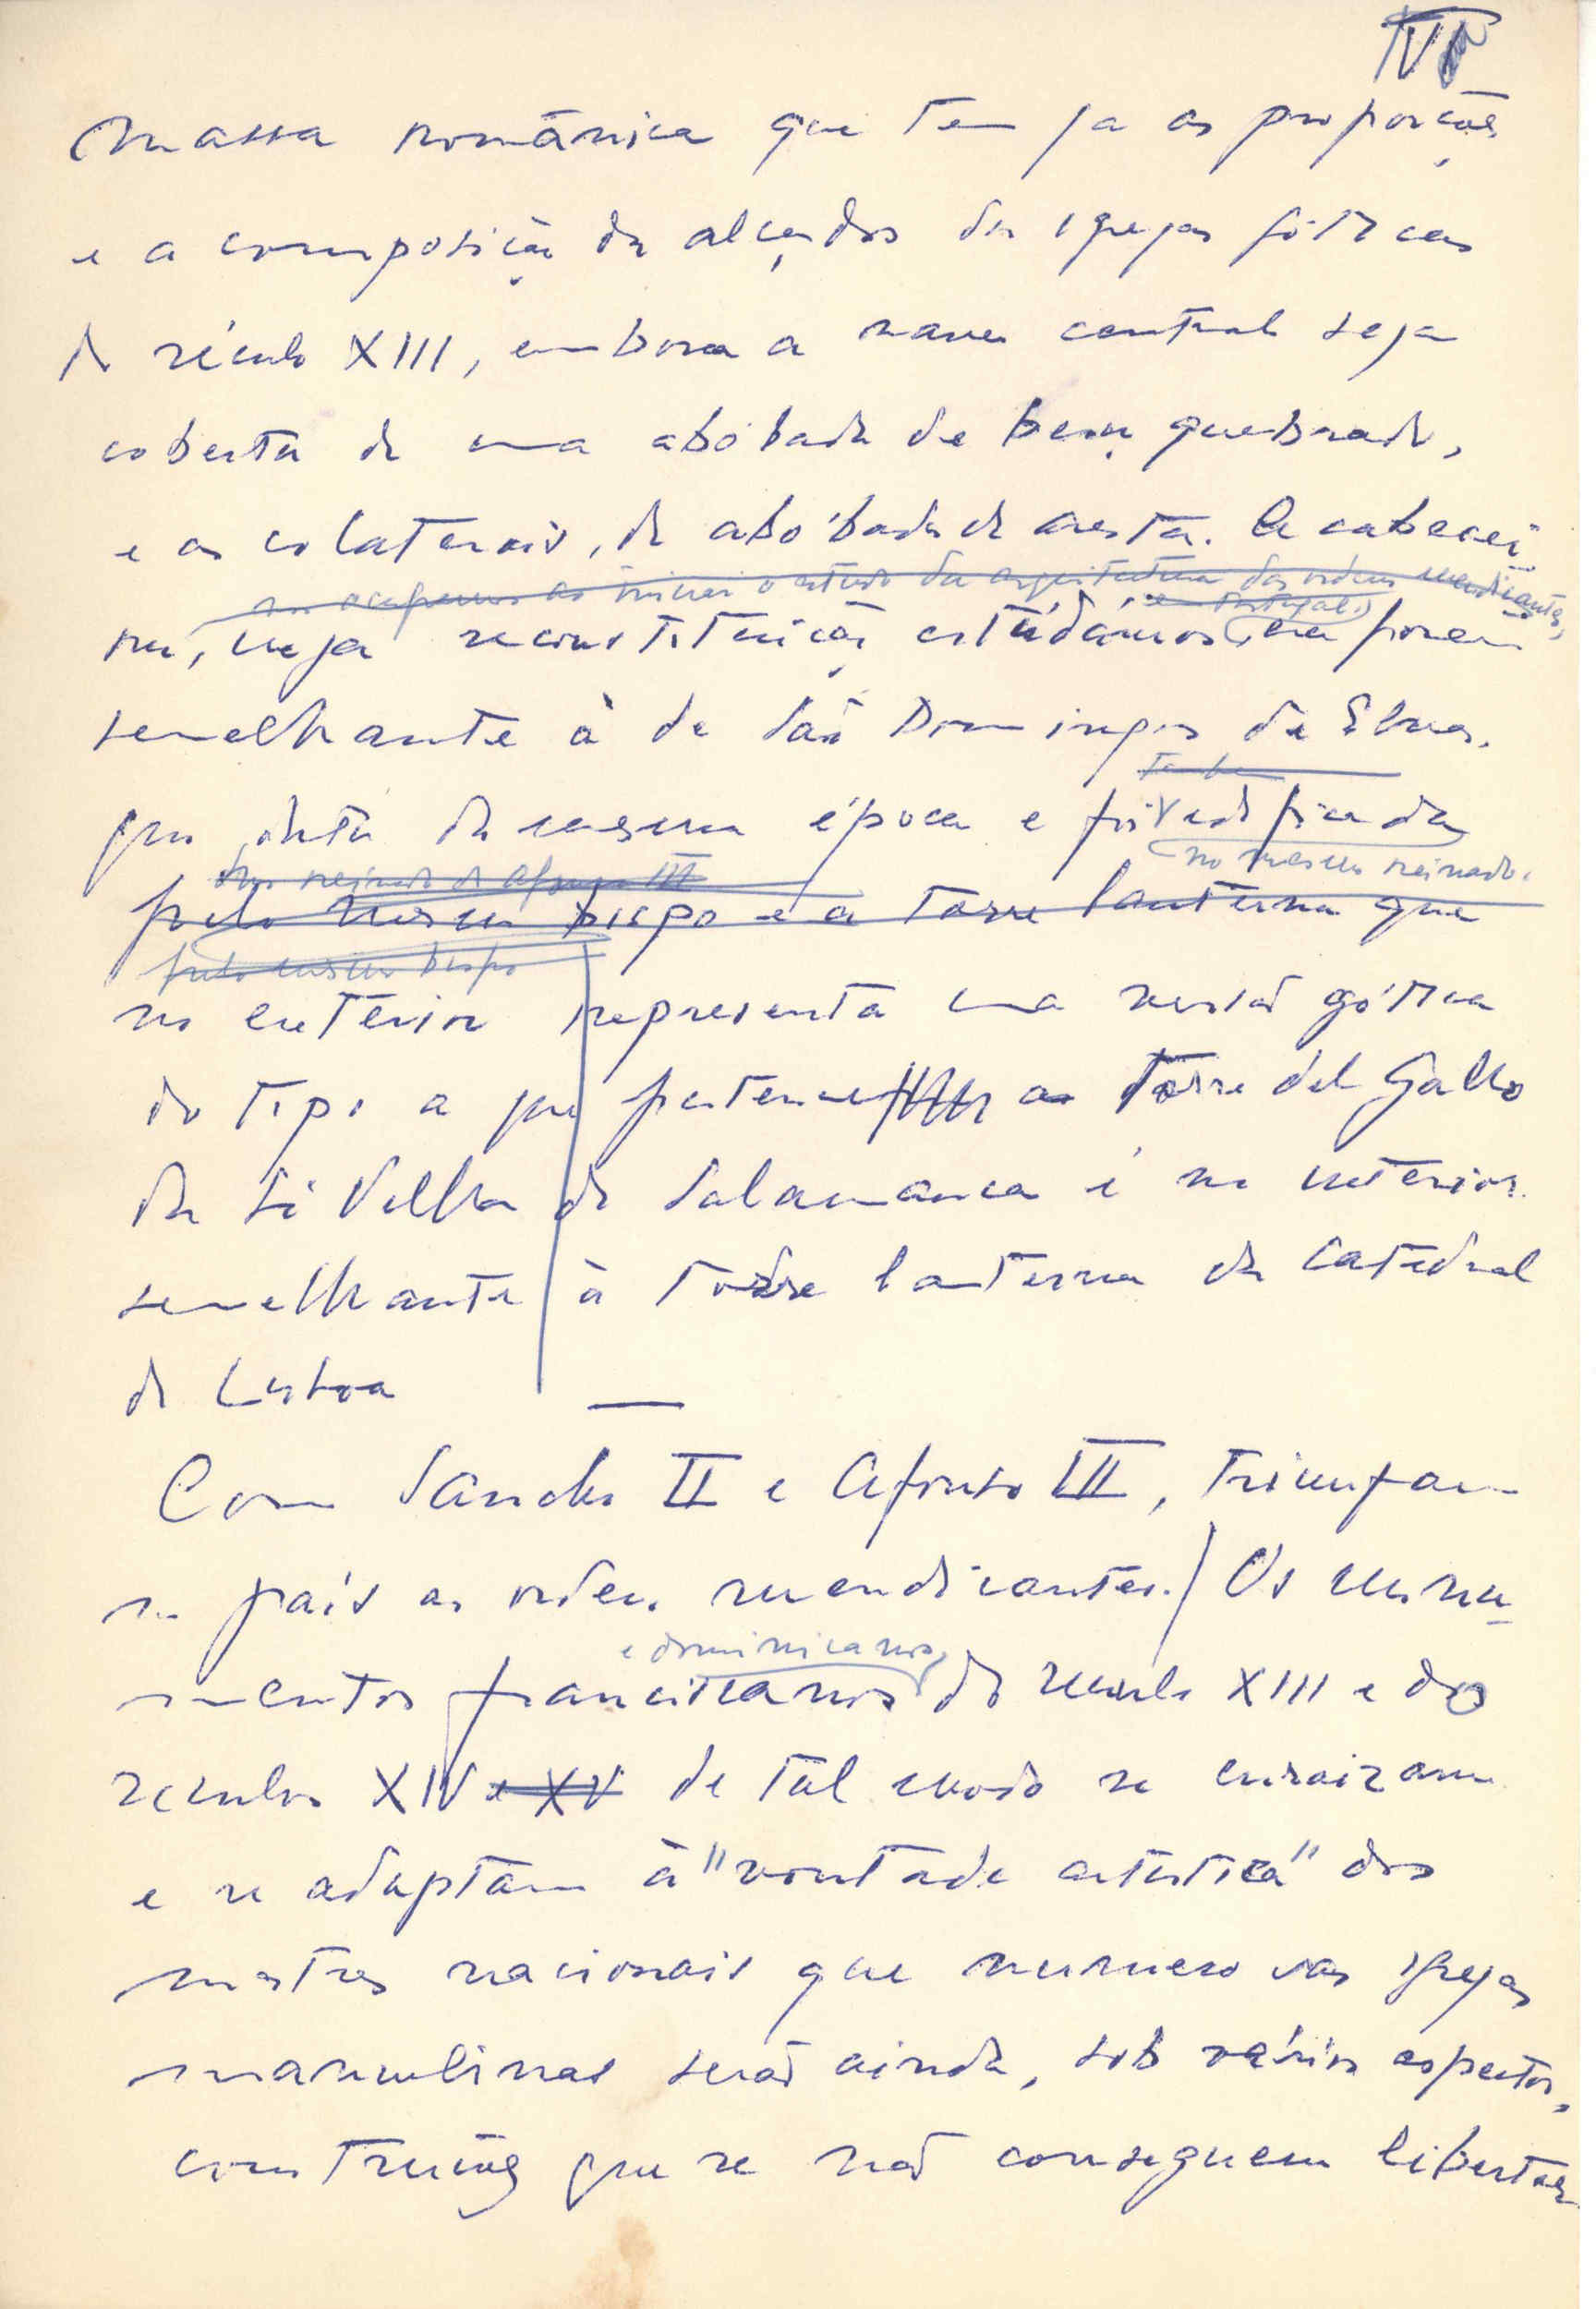 IV
massa românica que tem ja as proporções
e a composição dos alçados das igrejas góticas
do século XIII, embora a nave central seja
coberta de uma abóbada de berço quebrado,
e as colaterais, de abóbada de aresta. A cabecei
nos ocuparmos ao iniciar o estudo da arquitectura das ordens mendicantes,
e Portugal
ra, cuja reconstituição estudámos, era porem
semelhante à de São Domingos de Elvas,
tambem
que data da mesma época e foi edificada
no mesmo reinado.
do reinado de Afonso III
pelo mesmo bispo e a torre lanterna que
pelo mesmo bispo
no exterior representa uma versão gótica
do tipo a que pertence a Torre del Gallo
da Sé Velha de Salamanca é no interior
semelhante à torre lanterna da Catedral
de Lisboa
Com Sancho II e Afonso III, triunfam
no país as ordens mendicantes. Os monu
e dominicanos,
mentos franciscanos do século XIII e dos
séculos XIV e XV de tal modo se enraizam
e se adaptam à "vontade artística" dos
mestres nacionais que numerosas igrejas
manuelinas serão ainda, sob vários aspectos,
construções que se não conseguem libertar